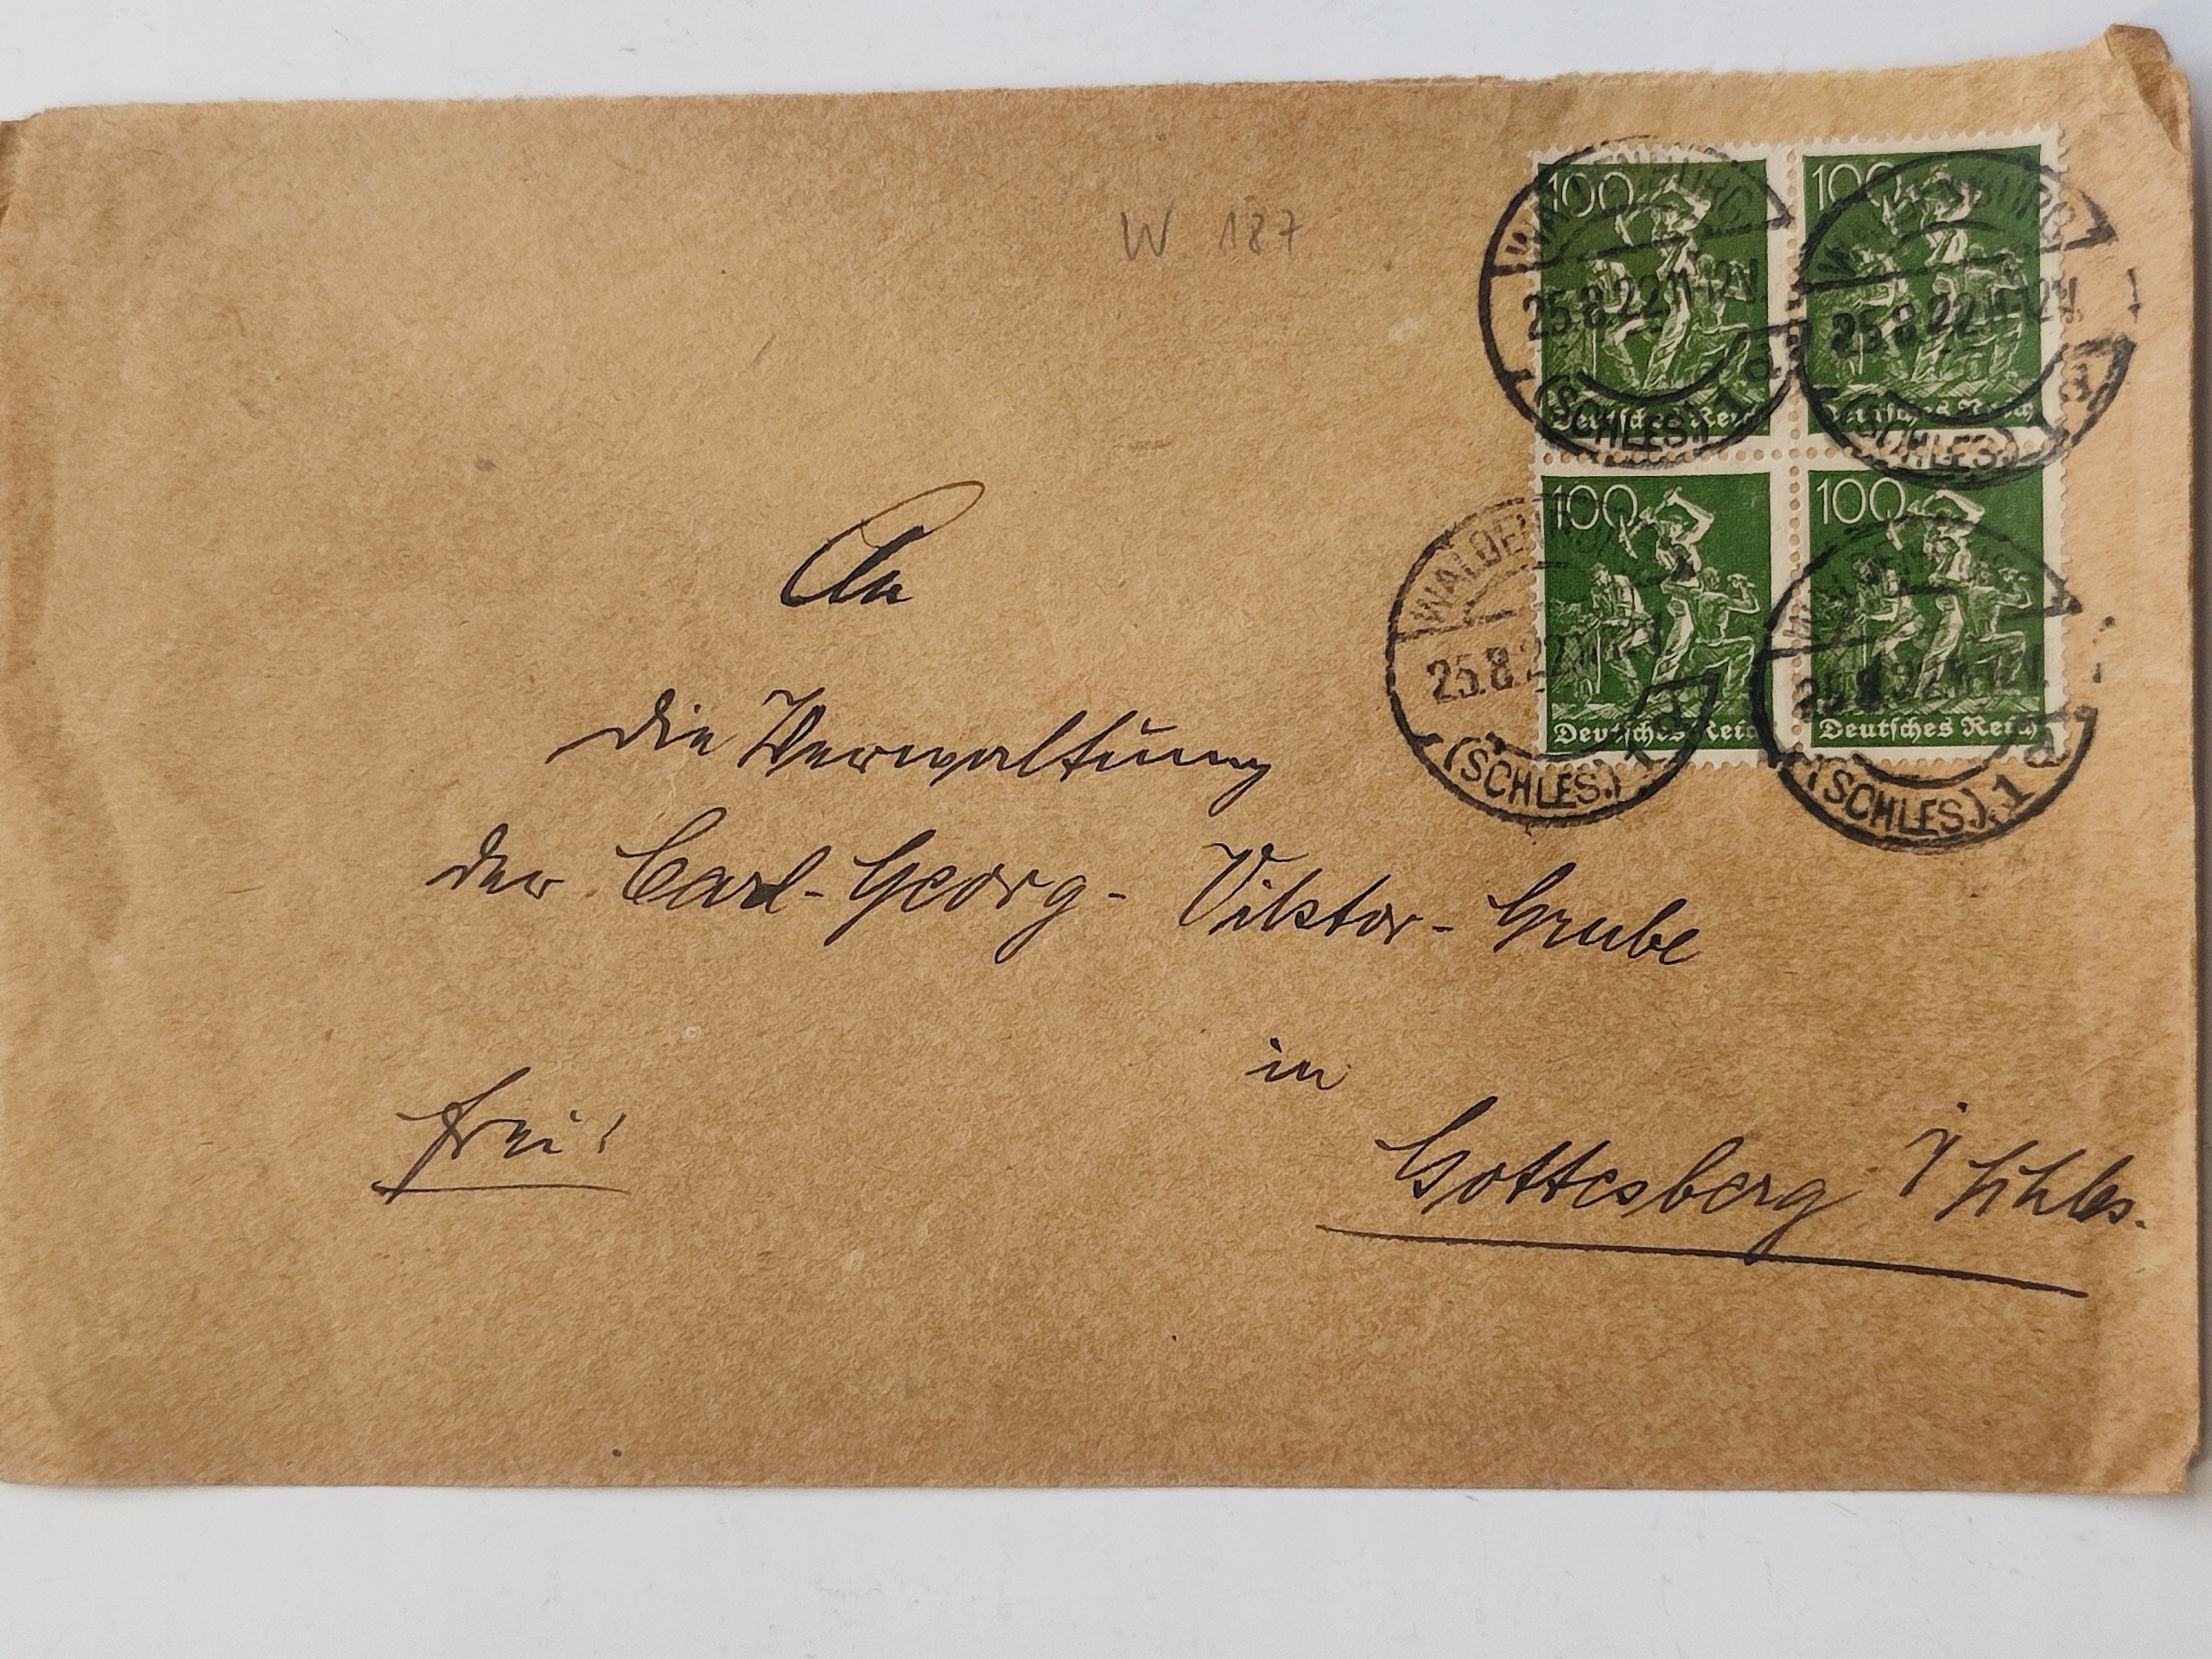 W 187
100 100
WALDENBURG WALDENBURG
25.8.22.11-12V. 25.8.22.11-12V.
(SCHLES.) 1 d (SCHLES.) d
Deutsches Reich Deutsches Reich
100 100
WALDENBURG WALDENBURG
25.8.22.11-12V. 25.8.22.11-12V.
Deutsches Reich Deutsches Reich
(SCHLES.) 1 d (SCHLES.) 1 d
An
die Verwaltung
der Carl-Georg-Viktor-Grube
in
frei!
Gottesberg i/Schles.